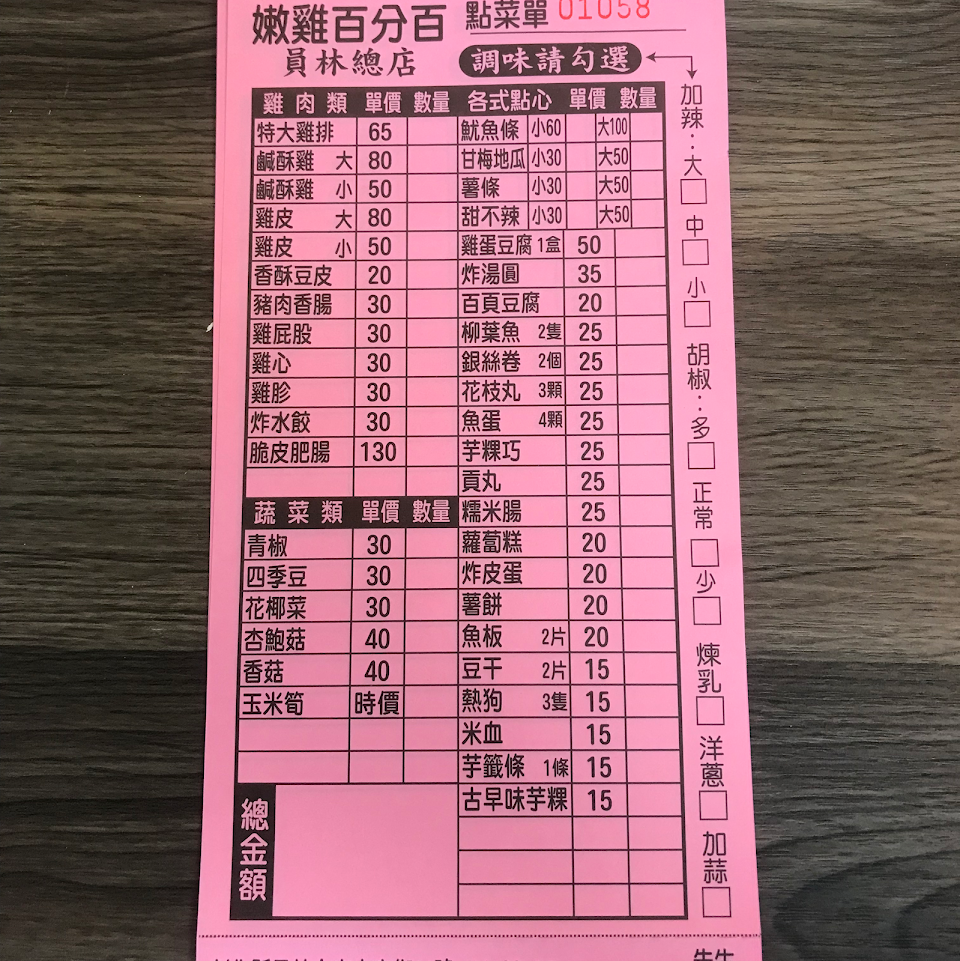 嫩雞百分百 點菜單 01058
員林總店 調味請勾選
雞肉類 單價 數量
特大雞排 65
鹹酥雞 大 80
鹹酥雞 小 50
雞皮 大 80
雞皮 小 50
香酥豆皮 20
豬肉香腸 30
雞屁股 30
雞心 30
雞胗 30
炸水餃 30
脆皮肥腸 130
蔬菜類 單價 數量
青椒 30
四季豆 30
花椰菜 30
杏鮑菇 40
香菇 40
玉米筍 時價
總金額
各式點心 單價 數量
魷魚條 小60 大100
甘梅地瓜 小30 大50
薯條 小30 大50
甜不辣 小30 大50
雞蛋豆腐 1盒 50
炸湯圓 35
百頁豆腐 20
柳葉魚 2隻 25
銀絲卷 2個 25
花枝丸 3顆 25
魚蛋 4顆 25
芋粿巧 25
貢丸 25
糯米腸 25
蘿蔔糕 20
炸皮蛋 20
薯餅 20
魚板 2片 20
豆干 2片 15
熱狗 3隻 15
米血 15
芋籤條 1條 15
古早味芋粿 15
加辣：大□ 中□ 小□
胡椒：多□ 正常□ 少□
煉乳□
洋蔥□
加蒜□